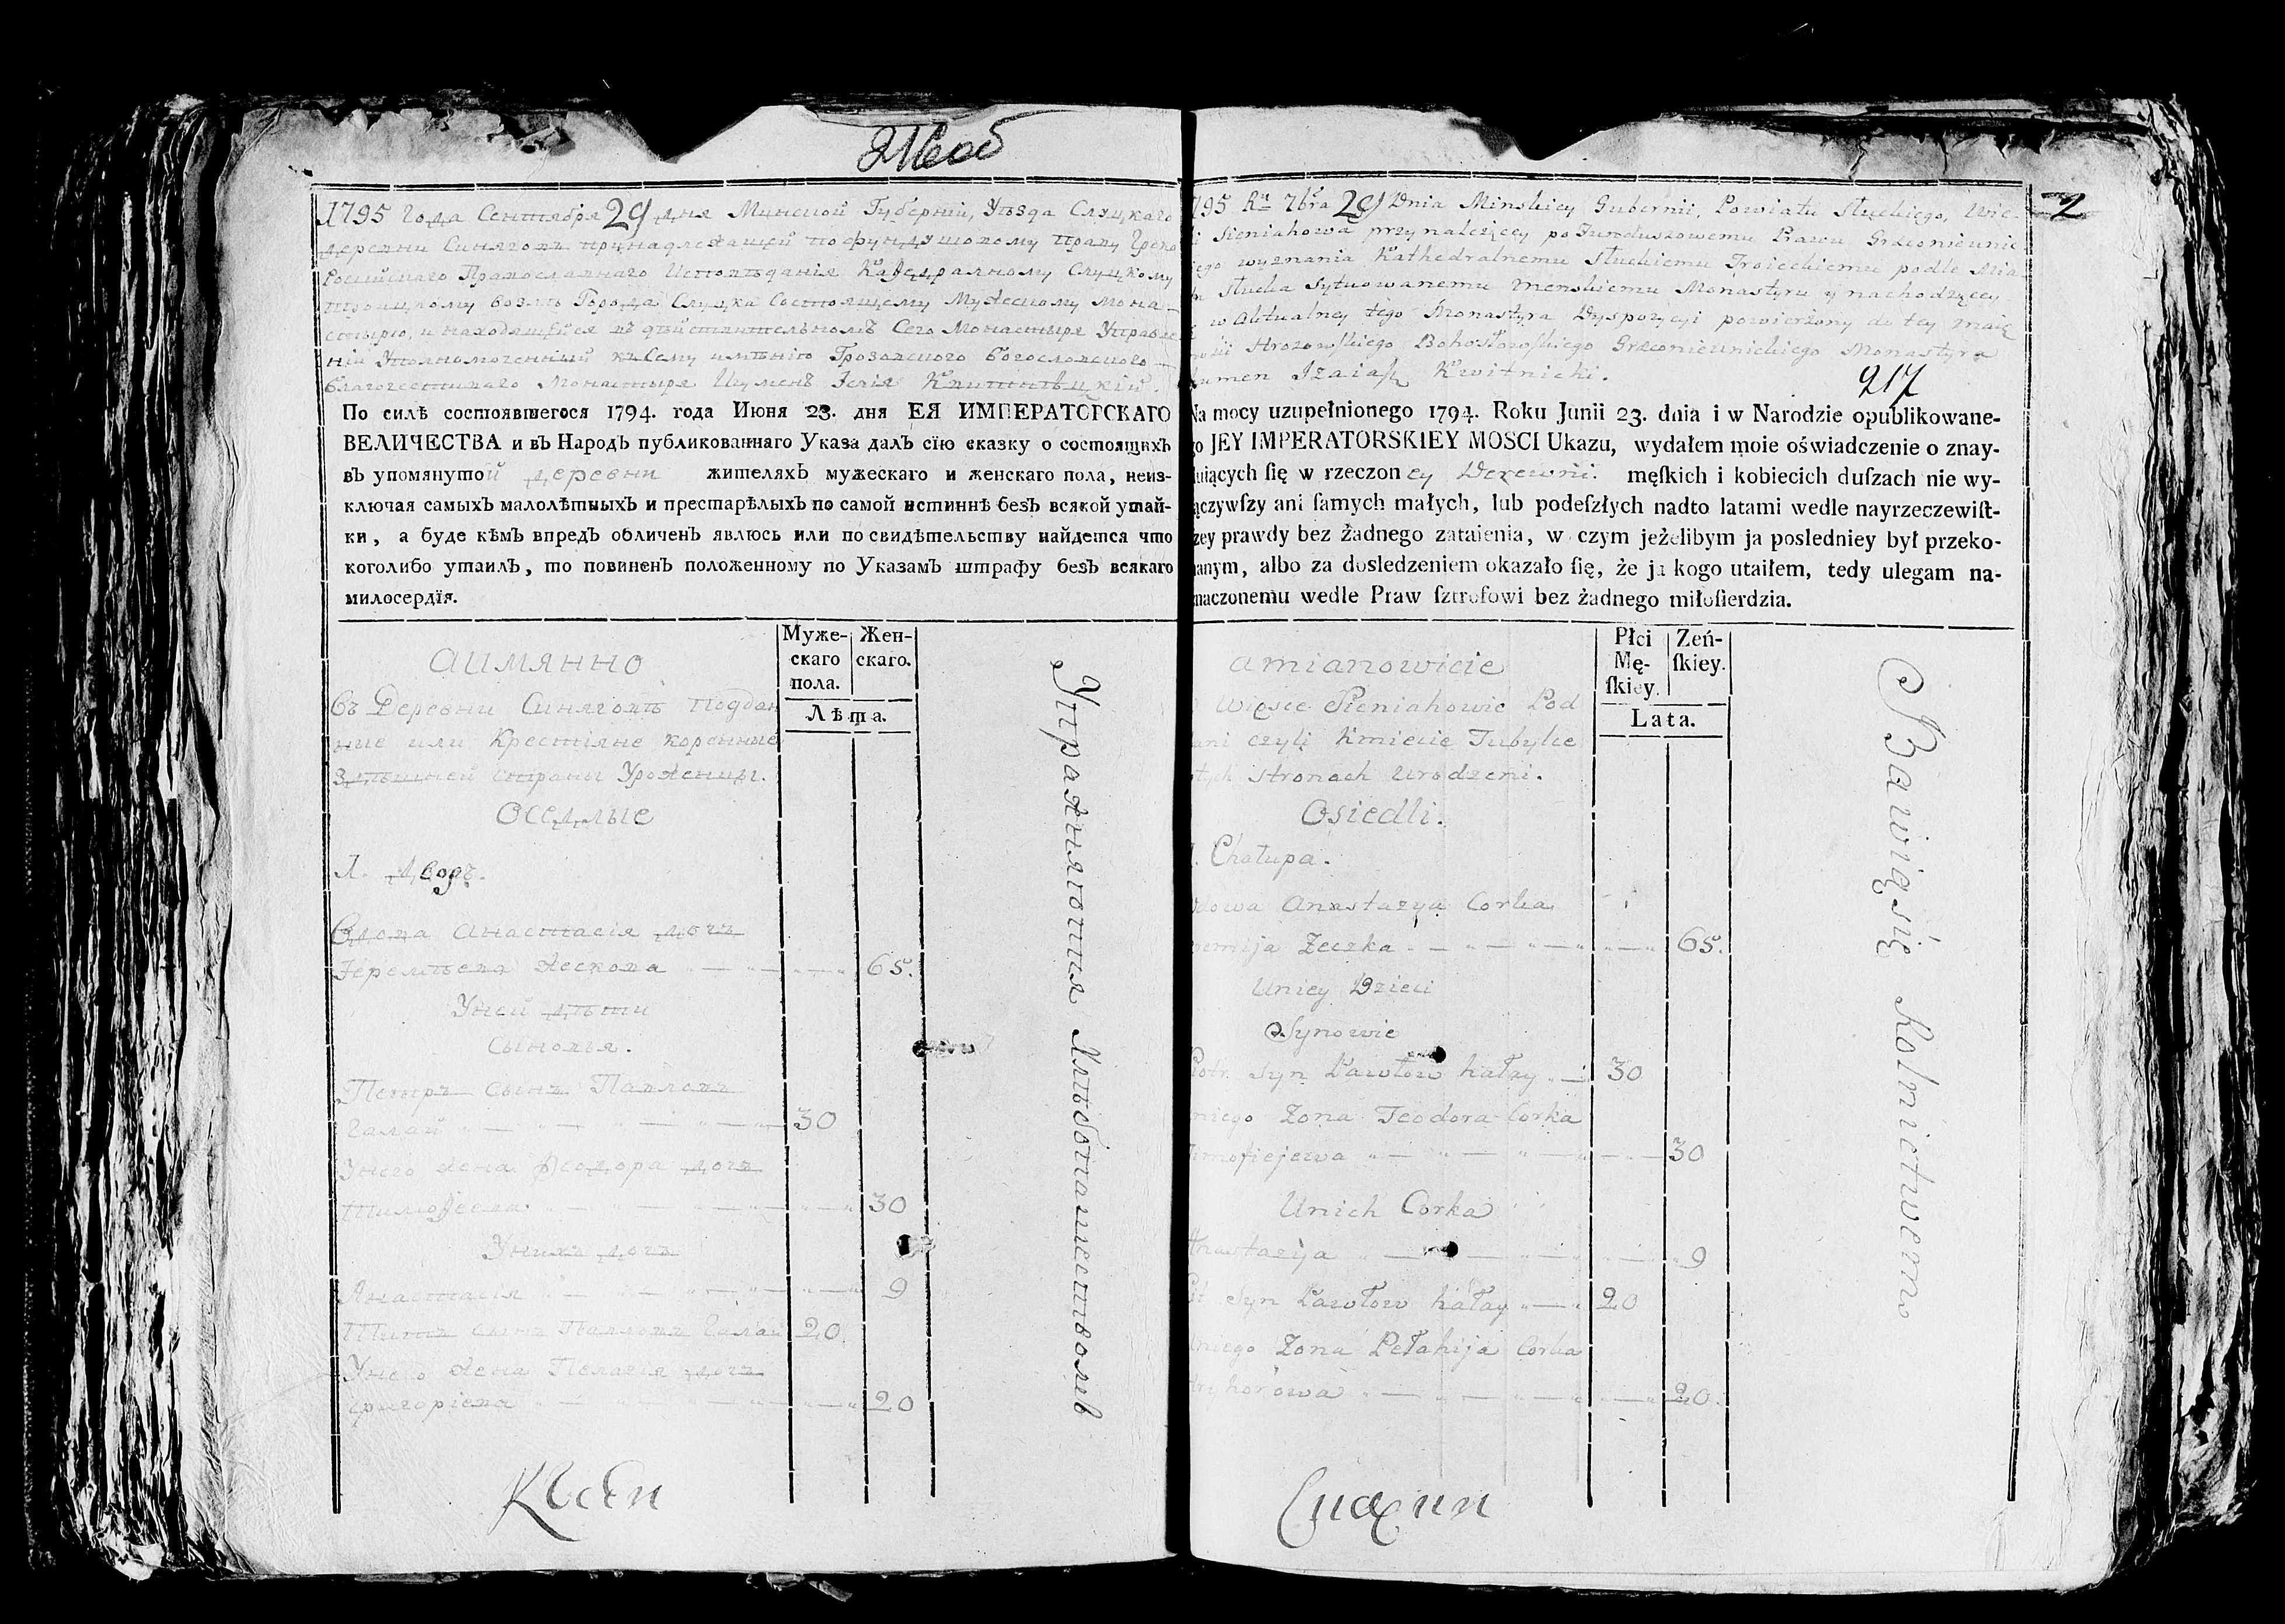 1795 Года Сентября 29 дня Минской Губернии, Уѣзда Слуцкаго
деревни Синяговъ принадлежащей по фундушовому праву Греко
Россiйскаго Православнаго Исповѣданiя Каѳедралному Слуцкому
Троицкому возлѣ Города Слуцка Состоящему Мужескому Мона-
стырю, и находящейся въ дѣйствительномъ Сего Монастыря Управле
нiи Уполномоченный къ Сему имѣнiю Грозовского Богословского
благочестиваго Монастыря Игуменъ Iсаiя Квитнѣцкiй.
По силѣ состоявшегося 1794. года Июня 23. дня ЕЯ ИМПЕРАТОРСКАГО
ВЕЛИЧЕСТВА и въ Народъ публикованнаго Указа далъ сїю сказку о состоящихъ
въ упомянутой деревни жителяхъ мужескаго и женскаго пола, неиз-
ключая самыхъ малолѣтныхъ и престарѣлыхъ по самой истиннѣ безъ всякой утай-
ки, а буде кѣмъ впредь обличенъ явлюсь или по свидѣтельству найдется что
коголибо утаилъ, то повиненъ положенному по Указамъ штрафу безъ всякаго
милосердїя.
Муже-
скаго
пола.
Жен-
скаго.
Лѣта.
аимянно
Въ Деревни Синяговъ Поддан
ные или Крестiяне коренные
Здѣшней Страны Уроженцы.
Оседлые
1. Дворъ.
Вдова Анастасiя дочь
Iеремѣева Жескова 65.
У ней дѣти
Сыновья.
Петръ сынъ Павловъ
Галай 30
У него жена Ѳеодора дочь
Тимоѳеева 30
У нихъ дочь
Анастасiя 9
Титъ сынъ Павловъ Галай 20.
У него жена Пелагiя дочь
Григорiева 20
Упражняются Хлѣбопашествомъ
2
795 Rᵘ 7bra 29 Dnia Minskiey Gubernii, Powiatu Słuckiego, Wie-
i Sieniahowa przynależącey po Funduszowemu Prawu Grzeconieunic
ego wyznania Kathedralnemu Słuckiemu Troieckiemu podle Mia
Słucka Sytuowanemu Menskiemu Monastyru y nachodzącey
w Aktualney tego Monastyra Dyspozycyi powierzony do tey maię
Hrozowskiego Bohosłowskiego Grzeconieunickiego Monastyra
umen Izaiasz Kwitnicki.
217
Na mocy uzupełnionego 1794. Roku Junii 23. dnia i w Narodzie opublikowane-
go JEY IMPERATORSKIEY MOSCI Ukazu, wydałem moie oświadczenie o znay-
duiących ſię w rzeczoney Derewni. męſkich i kobiecich duſzach nie wy-
ączywſzy ani ſamych małych, lub podeſzłych nadto latami wedle nayrzeczewiſt-
zey prawdy bez żadnego zataienia, w czym jeżelibym ja posledniey był przeko-
nanym, albo za dosledzeniem okazało ſię, że ja kogo utaiłem, tedy ulegam na-
znaczonemu wedle Praw ſztrofowi bez żadnego miłoſierdzia.
Płci
Mę-
ſkiey.
Zeń-
ſkiey.
Lata.
amianowicie
Wiesce Sieniahowie Pod
ani czyli Kmiecie Tubylce
tych stronach urodzeni.
Osiedli.
1. Chałupa.
dowa Anastazya Corka
remija Zeczka 65.
Uniey Dzieci
Synowie
Potr Syn Pawłow Hałay 30
niego Zona Teodora Corka
imofiejewa 30
Unich Corka
Anastazija 9
Syn Pawłow Hałay 20
Uniego Zona Pełahija Corka
Hryhorowa 20.
Bawią się Rolnictwem